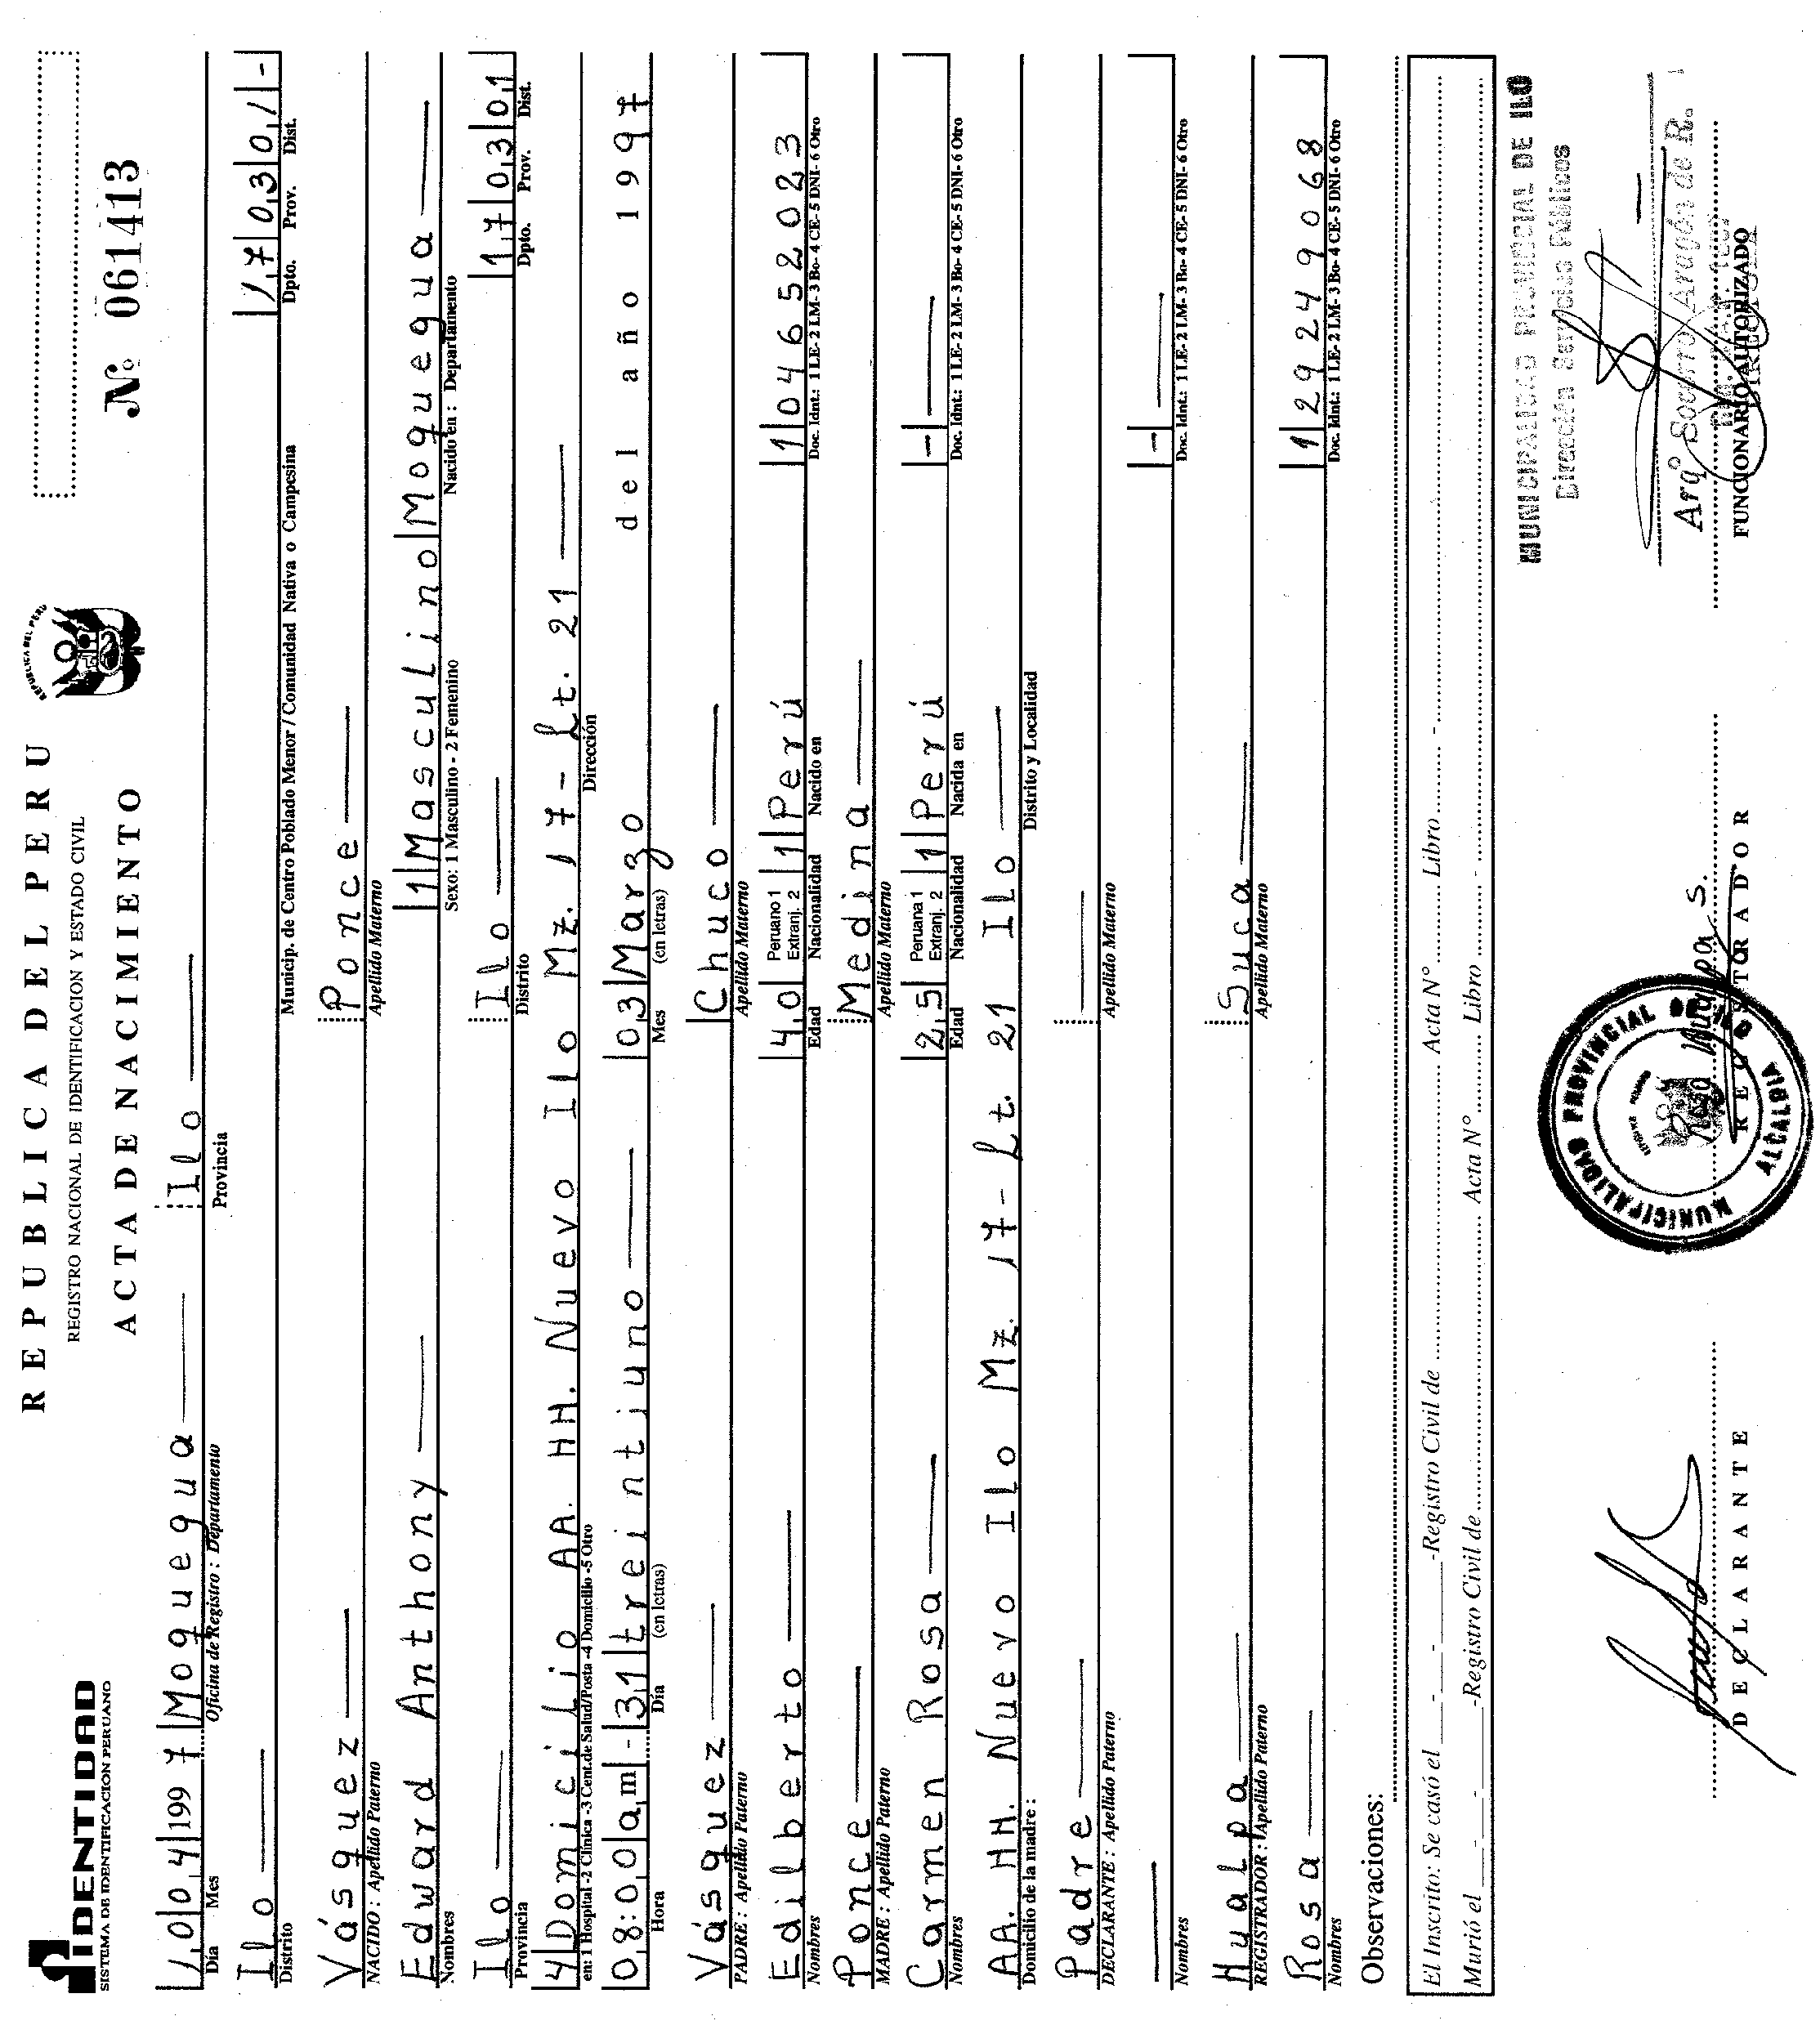 REPUBLICA DEL PERU
REGISTRO NACIONAL DE IDENTIFICACION Y ESTADO CIVIL
ACTA DE NACIMIENTO
IDENTIDAD
SISTEMA DE IDENTIFICACION PERUANO
REPUBLICA DEL PERU
Nº 061413
1,0 0,4 199 7 Moquegua Ilo
Día Mes Oficina de Registro : Departamento Provincia
Ilo 1,7 0,3 0,1 -
Distrito Municip. de Centro Poblado Menor / Comunidad Nativa o Campesina Dpto. Prov. Dist.
Vásquez Ponce
NACIDO : Apellido Paterno Apellido Materno
Edward Anthony 1 Masculino Moquegua
Nombres Sexo: 1 Masculino - 2 Femenino Nacido en : Departamento
Ilo Ilo 1,7 0,3 0,1
Provincia Distrito Dpto. Prov. Dist.
4 Domicilio AA. HH. Nuevo Ilo Mz. 17 - Lt. 21
en: 1 Hospital -2 Clínica -3 Cent.de Salud/Posta -4 Domicilio -5 Otro Dirección
0,8:0,0 a,m - 3,1 treintiuno 0,3 Marzo del año 1997
Hora Día (en letras) Mes (en letras)
Vásquez Chuco
PADRE : Apellido Paterno Apellido Materno
Edilberto 4,0 Peruano 1 Extranj. 2 1 Perú 1 04652023
Nombres Edad Nacionalidad Nacido en Doc. Idnt.: 1 LE- 2 LM- 3 Bo- 4 CE- 5 DNI- 6 Otro
Ponce Medina
MADRE : Apellido Paterno Apellido Materno
Carmen Rosa 2,5 Peruana 1 Extranj. 2 1 Perú -
Nombres Edad Nacionalidad Nacida en Doc. Idnt.: 1 LE- 2 LM- 3 Bo- 4 CE- 5 DNI- 6 Otro
AA. HH. Nuevo Ilo Mz. 17 - Lt. 21 Ilo
Domicilio de la madre : Distrito y Localidad
Padre
DECLARANTE : Apellido Paterno Apellido Materno
-
Nombres Doc. Idnt.: 1 LE- 2 LM- 3 Bo- 4 CE- 5 DNI- 6 Otro
Hualpa Suca
REGISTRADOR : Apellido Paterno Apellido Materno
Rosa 1 29249068
Nombres Doc. Idnt.: 1 LE- 2 LM- 3 Bo- 4 CE- 5 DNI- 6 Otro
Observaciones:
El Inscrito: Se casó el - - -Registro Civil de Acta N° Libro -
Murió el - - -Registro Civil de Acta N° Libro -
MUNICIPALIDAD PROVINCIAL DE ILO
Dirección Servicios Públicos
Arqº Socorro Aragón de R.
MUNICIPALIDAD PROVINCIAL DE ILO
ALCALDIA
Rosa Hualpa S.
DECLARANTE REGISTRADOR FUNCIONARIO AUTORIZADO